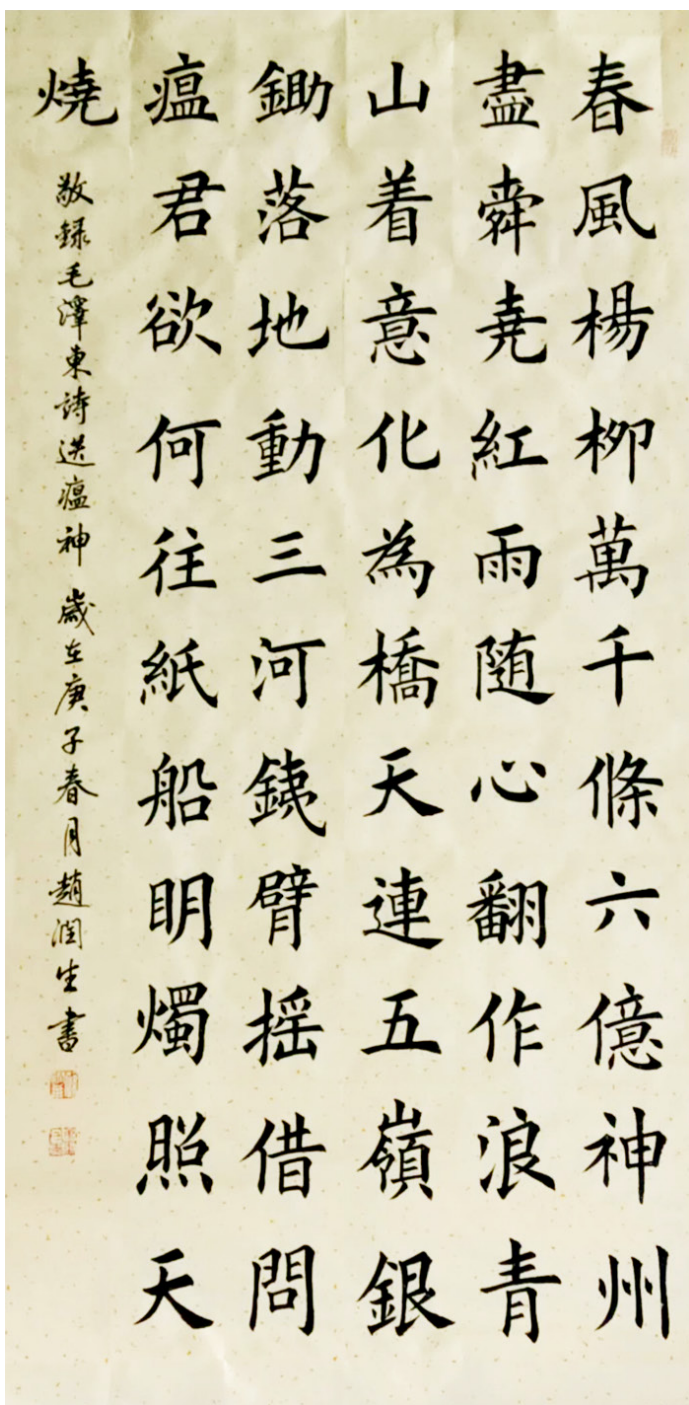 春風楊柳萬千條六億神州
盡舜堯紅雨随心翻作浪青
山着意化為橋天連五嶺銀
鋤落地動三河銕臂摇借問
瘟君欲何往紙船明燭照天
燒
敬録毛澤東詩送瘟神 歲在庚子春月趙潤生書